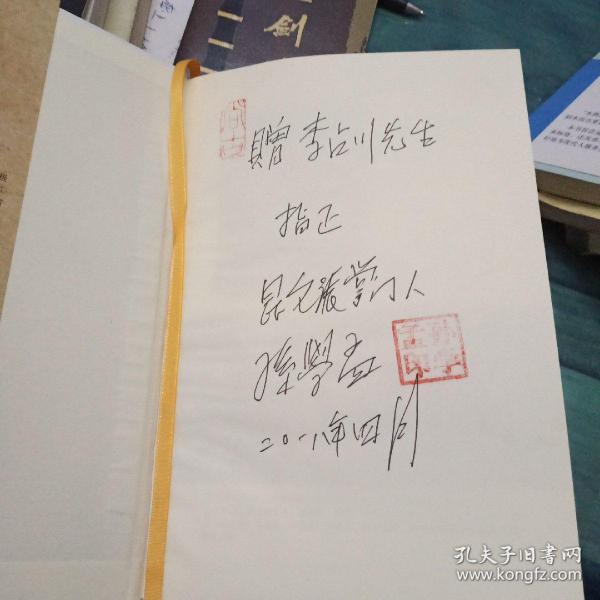 剑
贈 李占川先生
指正
昆仑派掌门人
孫學孟
孙学
孟印
二〇一八年四月
孔夫子旧书网
www.kongfz.com